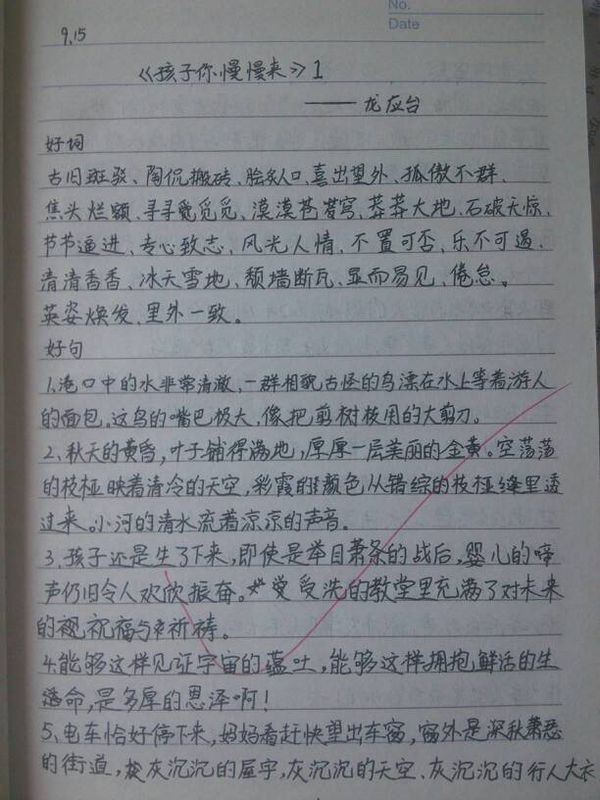 No.
Date
9.15
《孩子你慢慢来》1
——龙应台
好词
古旧斑驳、陶侃搬砖、脍炙人口、喜出望外、孤傲不群、
焦头烂额、寻寻觅觅觅、漠漠苍穹、莽莽大地、石破天惊、
节节逼进、专心致志、风光人情、不置可否、乐不可遏、
清清香香、冰天雪地、颓墙断瓦、显而易见、倦怠。
英姿焕发、里外一致。
好句
1.港口中的水非常清澈,一群相貌古怪的鸟漂在水上等着游人
的面包。这鸟的嘴巴极大,像把剪树枝用的大剪刀。
2、秋天的黄昏,叶子铺得满地,厚厚一层美丽的金黄。空荡荡
的枝桠映着清冷的天空,彩霞的颜色从错综的枝桠缝里透
过来。小河的清水流着凉凉的声音。
3、孩子还是生了下来,即使是举目萧条的战后,婴儿的啼
声仍旧令人欢欣振奋。受洗的教堂里充满了对未来
的祝福与祈祷。
4.能够这样见证宇宙的蕴吐,能够这样拥抱鲜活的生
命,是多厚的恩泽啊!
5、电车恰好停下来,妈妈看赶快望出车窗,窗外是深秋萧瑟
的街道,灰沉沉的屋宇,灰沉沉的天空、灰沉沉的行人大衣